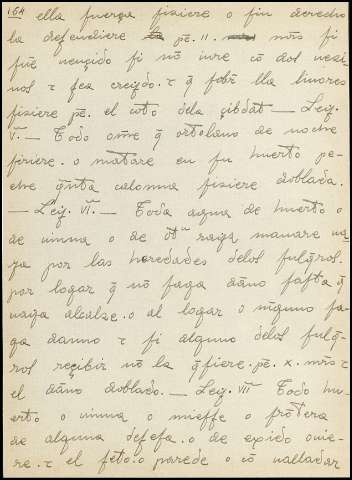 164 ella fuerça fiziere o fin derecho
la defendiere pē. II. mr̄s fi
fue uençido fi nō iure cō dos uezi
nos τ fea creýdo. τ q̄ fobr̄ lla lauores
fiziere pē. el coto dela çibdat — Ley.
V. — Todo om̄e q̄ ortolano de noche
firiere. o matare en fu huerto pe-
che q̄nta calonna fiziere doblada.
— Ley. VI. — Toda agua de huerto o
de uinna o de ot^a rayz manare ua-
ya por las heredades delos fulq̄ros.
por logar q̄ nō faga dāno fafta q̄
uaya alcalze. o al logar o ninguno fa-
ga danno τ fi alguno delos fulq̄-
ros reçibir nō la q̄fiere. pē. x. mr̄s τ
el dāno doblado. — Ley. VII Todo hu-
erto o uinna o mieffe o frōtera
de alguna defefa. o de exido ouie-
re. τ el feto. o parede o cō ualladar